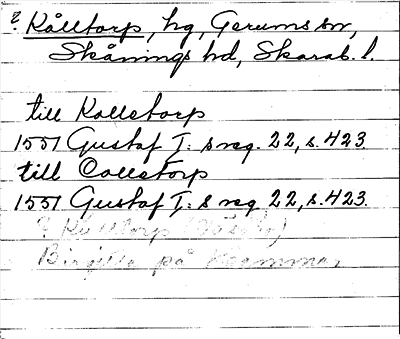 ? Kålltorp, hg, Gerums sn,
Skånings hd, Skarab. l.
till Kolletorp
1551 Gustaf I: s reg. 22, s. 423
till Collstorp
1551 Gustaf I: s reg. 22, s. 423.
? Kålltorp
Birgitta på